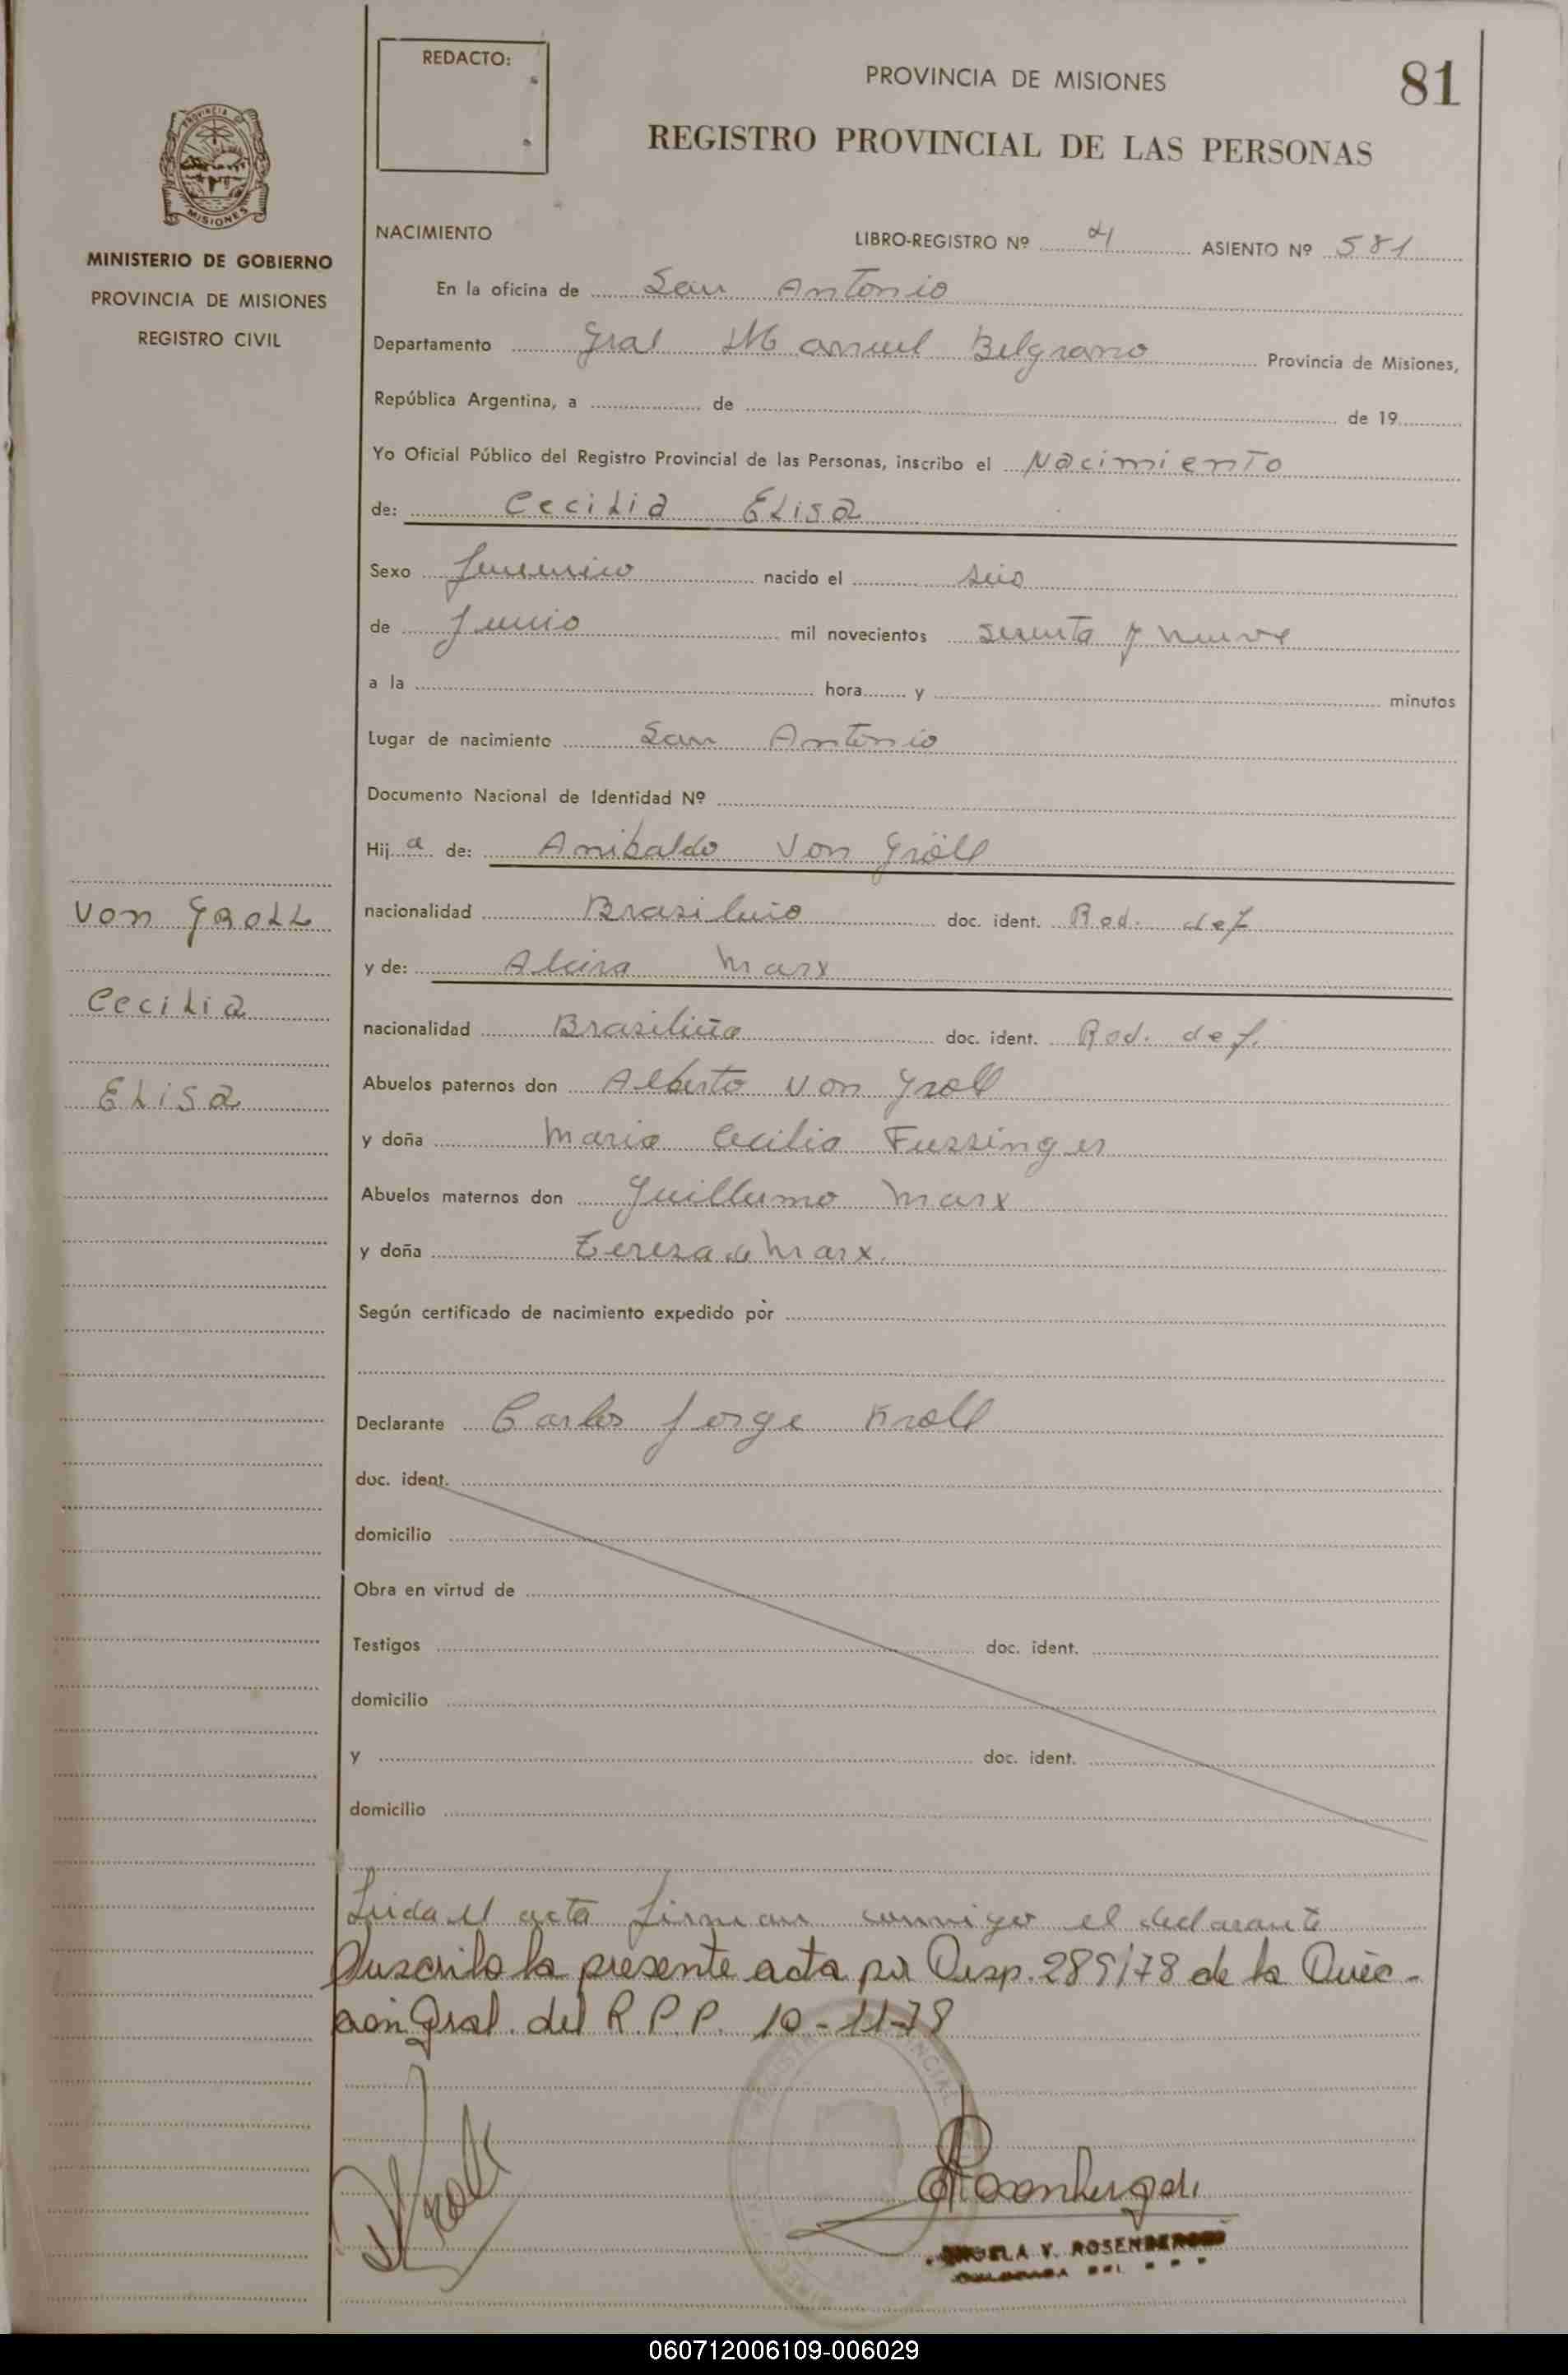 REDACTO:
PROVINCIA DE MISIONES
81
REGISTRO PROVINCIAL DE LAS PERSONAS
PROVINCIA
MISIONES
MINISTERIO DE GOBIERNO
PROVINCIA DE MISIONES
REGISTRO CIVIL
NACIMIENTO
LIBRO-REGISTRO Nº 4 ASIENTO Nº 581
En la oficina de San Antonio
Departamento Gral Manuel Belgrano Provincia de Misiones,
República Argentina, a de de 19
Yo Oficial Público del Registro Provincial de las Personas, inscribo el Nacimiento
de: Cecilia Elisa
Sexo femenino nacido el seis
de Junio mil novecientos sesenta y nueve
a la hora y minutos
Lugar de nacimiento San Antonio
Documento Nacional de Identidad Nº
Hij a de: Anibaldo Von Gröll
nacionalidad Brasileño doc. ident. Rod. def
y de: Alcira Marx
nacionalidad Brasileña doc. ident. Rod. def.
Abuelos paternos don Alberto Von Groll
y doña Maria Cecilia Fussinger
Abuelos maternos don Guillermo Marx
y doña Tereza de Marx.
Según certificado de nacimiento expedido por
Declarante Carlos Jorge Kroll
doc. ident.
domicilio
Obra en virtud de
Testigos doc. ident.
domicilio
y doc. ident.
domicilio
Von Groll
Cecilia
Elisa
Leida el acta firman conmigo el declarante
Suscribo la presente acta por Disp. 289/78 de la Direc-
ción Gral. del R.P.P. 10-11-78
Kroll
Rosenberger
ANGELA V. ROSENBERGER
060712006109-006029